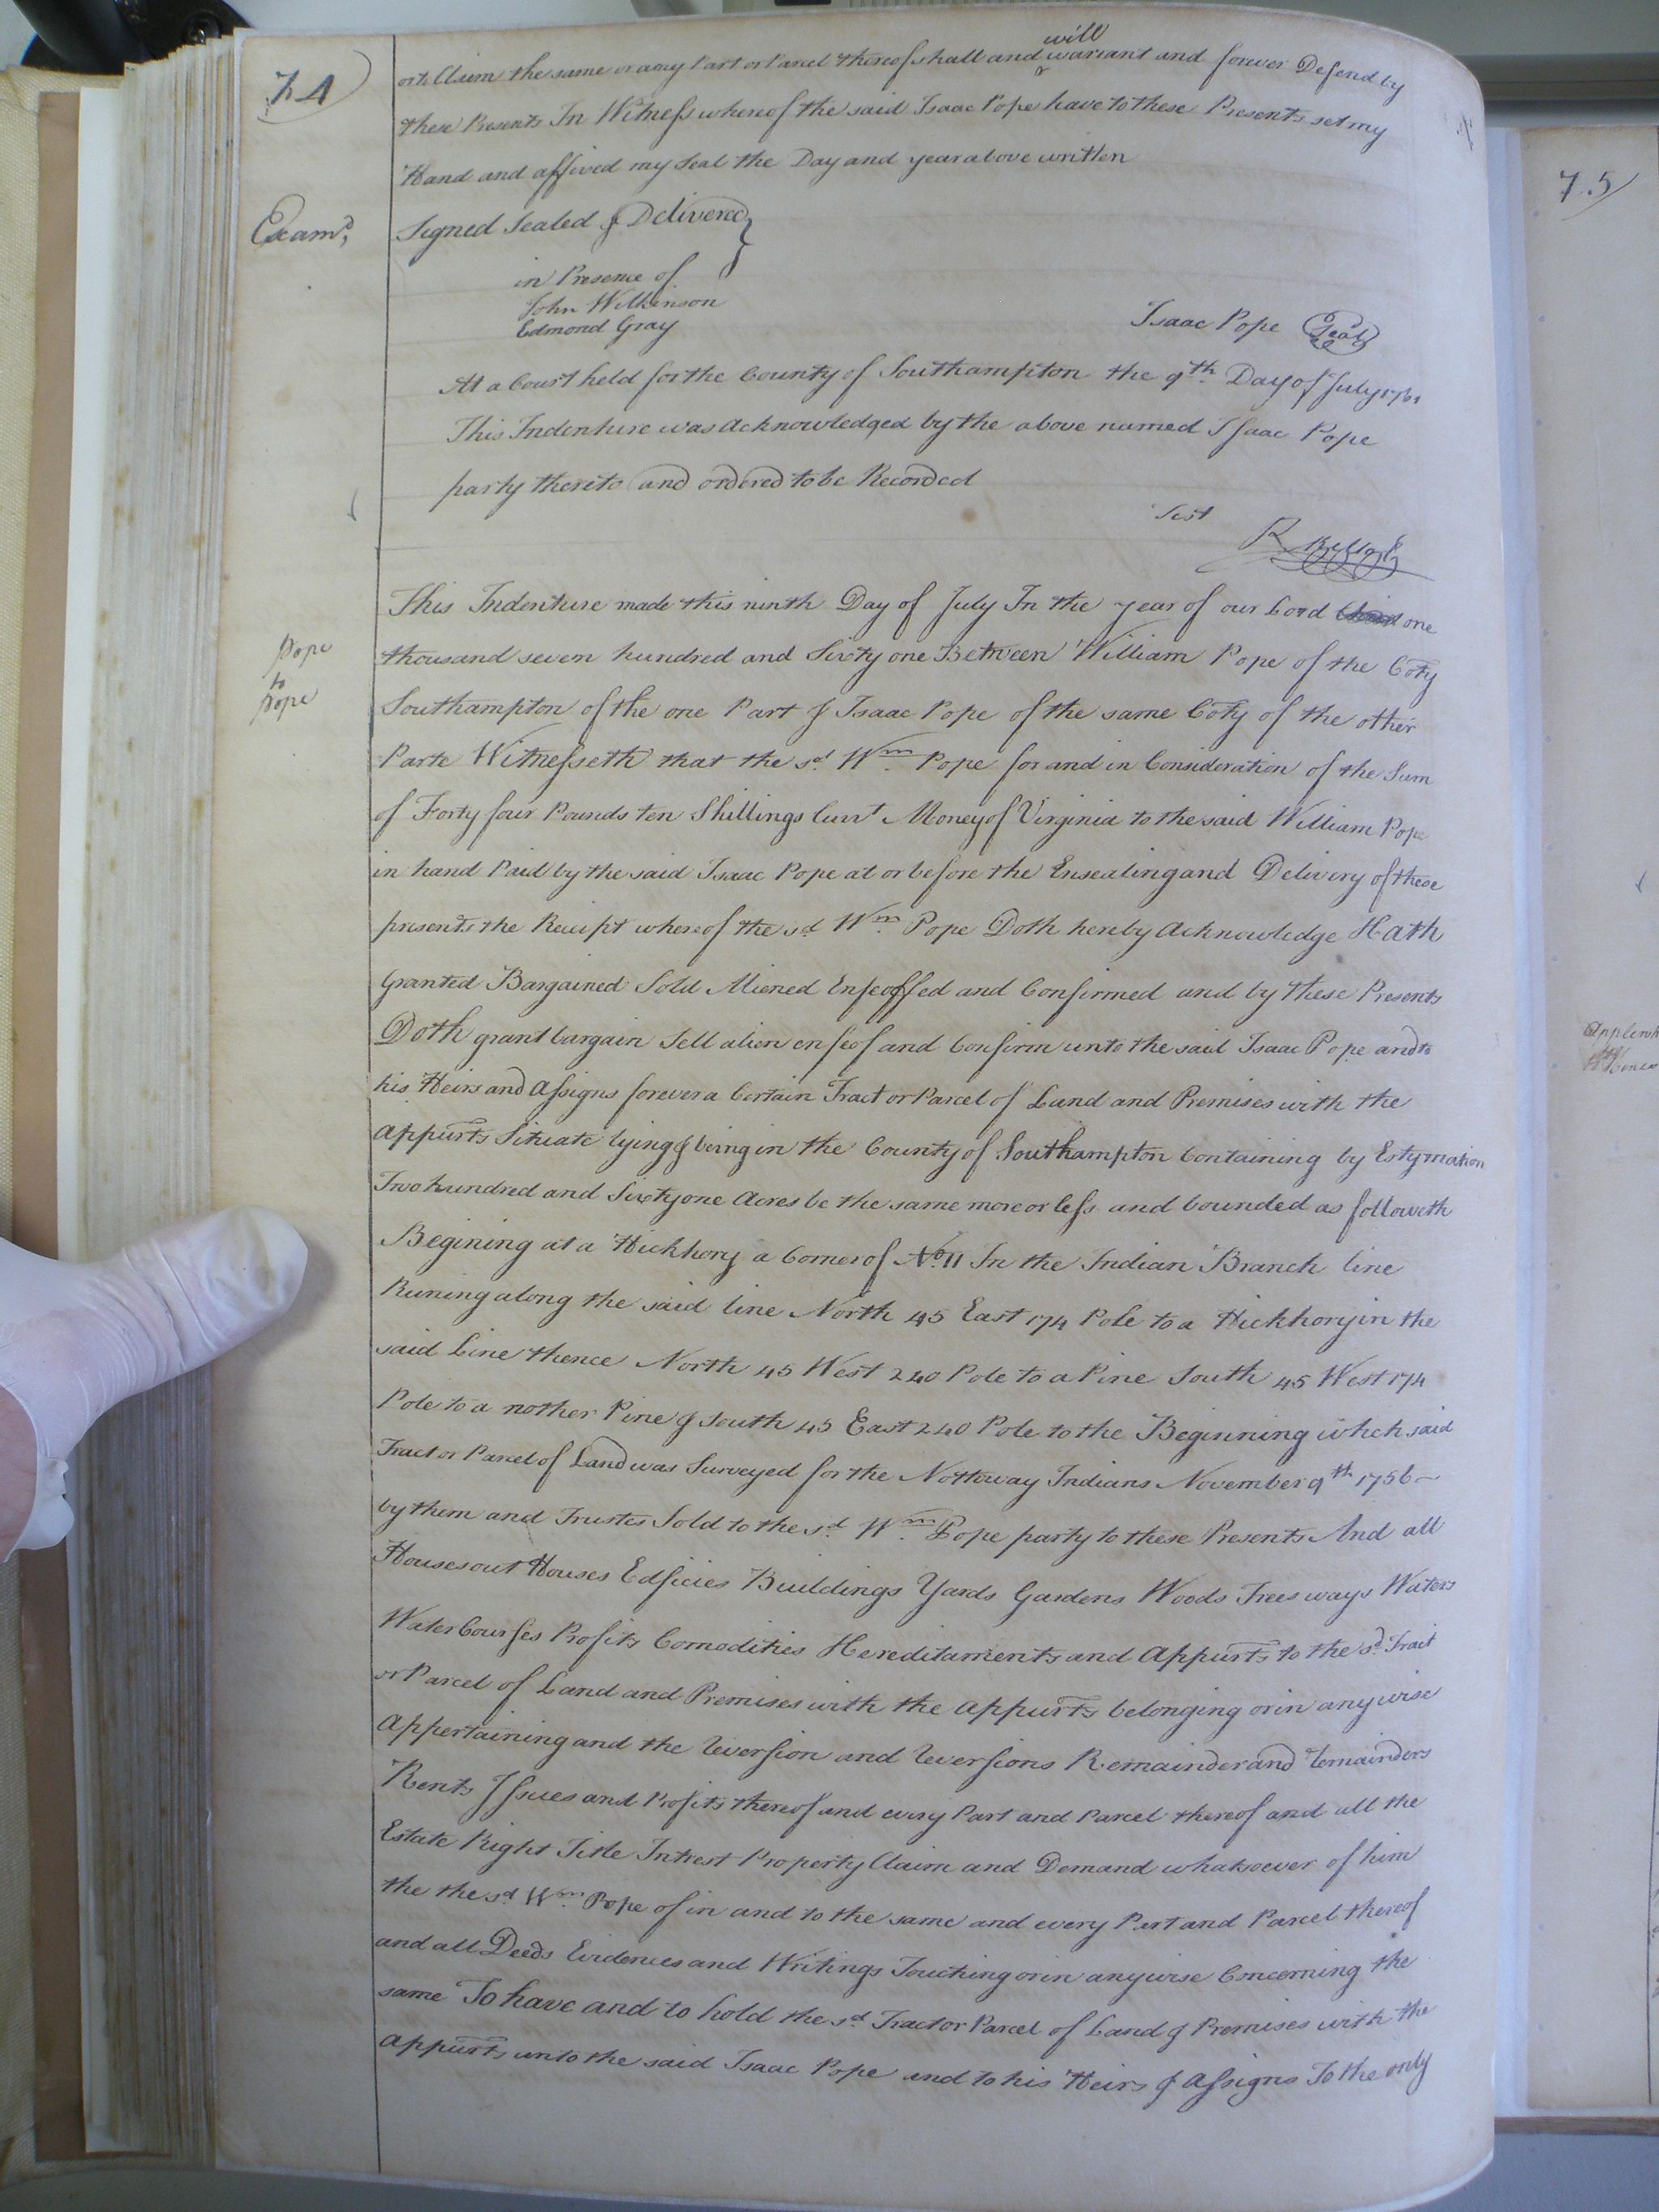 74
will
or to Claim the same or any Part or Parcel thereof shall and warrant and forever Defend by
these Presents In Witness whereof the said Isaac Pope have to these Presents set my
Hand and affixed my Seal the Day and year above written
Exam'd,
Signed Sealed & Delivered
in Presence of
John Wilkinson
Edmond Gray
Isaac Pope Seal
At a Court held for the County of Southampton the 9th Day of July 1761
This Indenture was Acknowledged by the above named Isaac Pope
party thereto and ordered to be Recorded
Test
R
Pope
to
Pope
This Indenture made this ninth Day of July In the year of our Lord one
thousand seven hundred and Sixty one Between William Pope of the Coty
Southampton of the one Part & Isaac Pope of the same Coty of the other
Parte Witnesseth that the sd. Wm. Pope for and in Consideration of the Sum
of Forty four Pounds ten Shillings Currt Money of Virginia to the said William Pope
in hand Paid by the said Isaac Pope at or before the Ensealing and Delivery of these
presents the Receipt whereof the sd Wm. Pope Doth hereby Acknowledge Hath
Granted Bargained Sold Aliened Enfeoffed and Confirmed and by these Presents
Doth grant bargain Sell alien enfeof and Confirm unto the said Isaac Pope and to
his Heirs and Assigns forever a Certain Tract or Parcel of Land and Premises with the
Appurts Situate lying & being in the County of Southampton Containing by Estymation
Two hundred and Sixty one Acres be the same more or less and bounded as followeth
Begining at a Hickhory a Corner of No. 11 In the Indian Branch line
Runing along the said line North 45 East 174 Pole to a Hickhory in the
said Line thence North 45 West 240 Pole to a Pine South 45 West 174
Pole to a nother Pine & South 45 East 240 Pole to the Beginning which said
Tract or Parcel of Land was Surveyed for the Nottoway Indians November 9th 1756
by them and Trustes Sold to the sd Wm. Pope party to these Presents And all
Houses out Houses Edficies Buildings Yards Gardens Woods Trees ways Waters
Water Courses Profits Comodities Hereditaments and Appurts to the sd. Tract
or Parcel of Land and Premises with the appurts belonging or in any wise
Appertaining and the Reversion and Reversions Remainder and Remainders
Rents Issues and Profits thereof and every Part and Parcel thereof and all the
Estate Right Title Intrest Property Claim and Demand whatsoever of him
the the sd Wm. Pope of in and to the same and every Part and Parcel thereof
and all Deeds Evidences and Writings Touching or in anywise Concerning the
same To have and to hold the sd Tract or Parcel of Land & Premises with the
Appurts unto the said Isaac Pope and to his Heirs & Assigns To the only
75